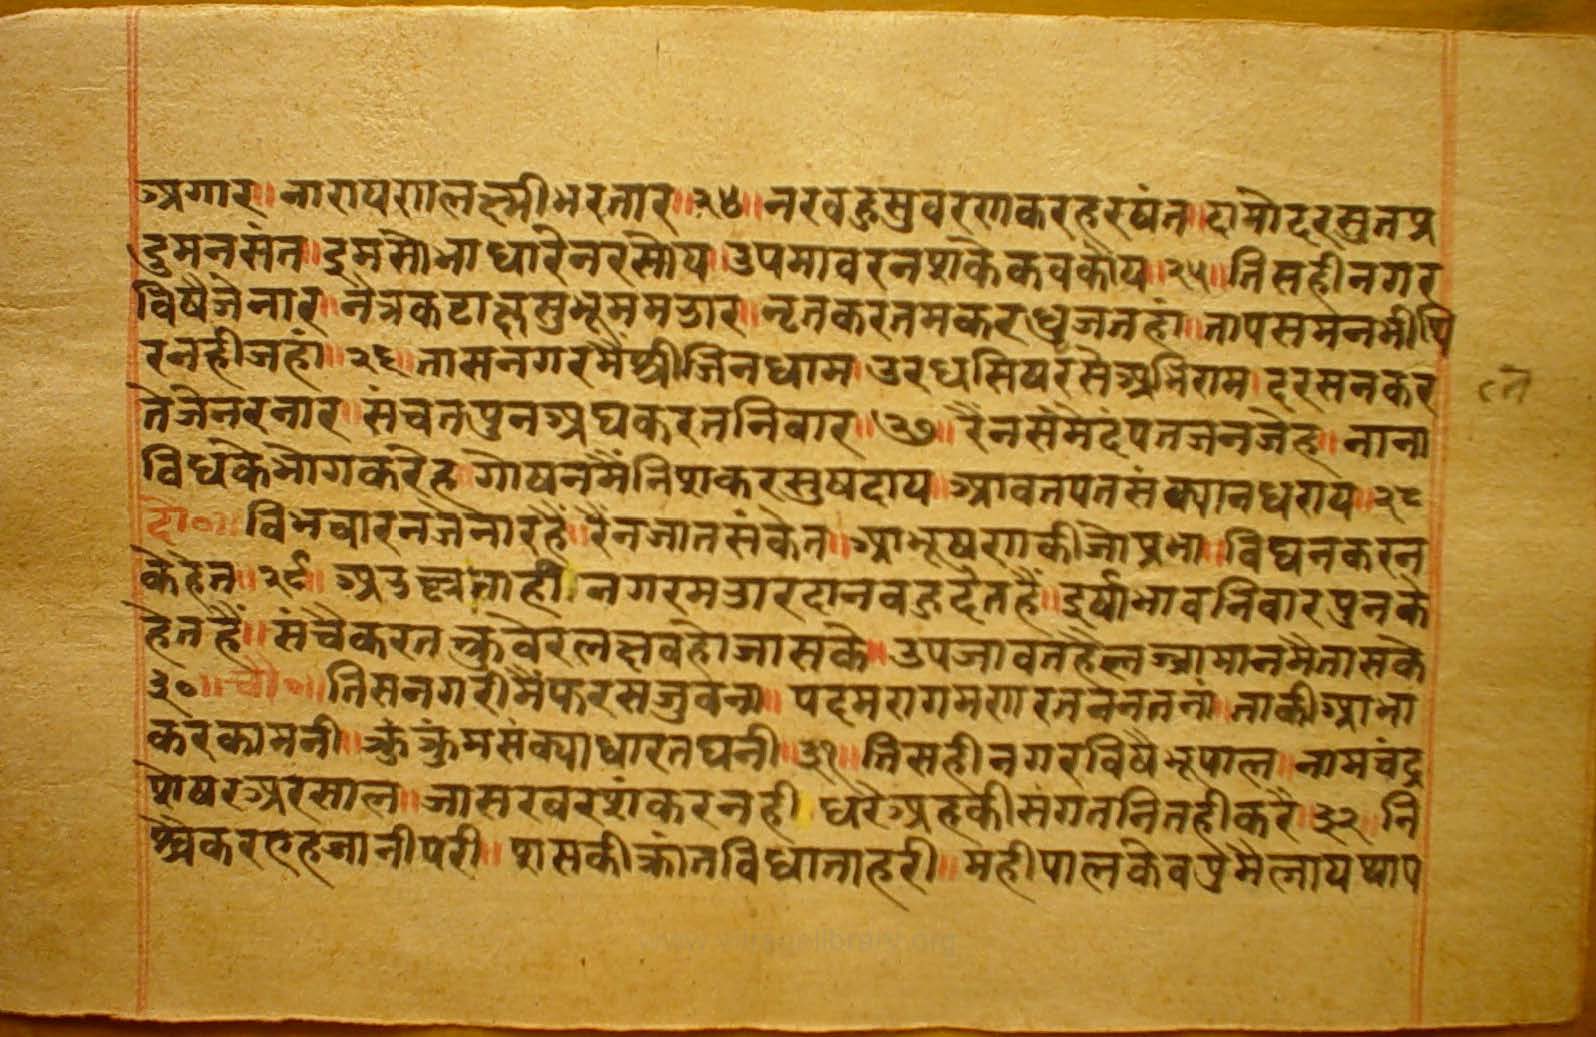 अगार॥ नारायणलक्ष्मीभरतार॥२४॥ नरवहुसुवरणकरहरषंत॥ दामोदरसुतप्र
दुमनसंत॥ इमसोभाधारेनरसोय॥ उपमावरनशकैकवकोय॥२५॥ तिसहीनगर
विषैजेनार॥ नैत्रकटाक्षसुभूममझार॥ नृतकरतमकरध्वजतहां॥ तापसमनभीथि
रनहीजहां॥२६॥ तासनगरमैश्रीजिनधाम॥ उरधसिषरसैअभिराम॥ दरसनकर
तेजेनरनार॥ संचतपुनअघकरतनिवार॥२७॥ रैनसमैदंपतजनजेह॥ नाना
विधकेभोगकरेह॥ गोषनमैंनिशकरसुषदाय॥ आवतपतसंक्यानधराय॥२८
दो०॥ विभचारनजेनारहैं॥ रैनजातसंकेत॥ आभूषणकीजोप्रभा॥ विघनकरन
केहेत॥२९॥ नगरमझारदानवहुदेतहैं॥ दुर्षाभावनिवारपुनके
हेतहैं॥ संचैकरतकुवेरलक्षवहोजासके॥ उपजावतहैलज्जामानमैतासके
३०॥ चौ०॥ तिसनगरीमैंफरसजुवन्या॥ पदमरागमणरतननतनां॥ ताकीआभा
करकामनी॥ कुंकुंमसंक्याधारतघनी॥३१॥ तिसहीनगरविषैभूपाल॥ नामचंद्र
शेषरअरसाल॥ जासरवरशंकरनही॥ धरैअहकीसंगतनितहीकरै॥३२॥ नि
श्चैकरएहजानीपरी॥ शसकीक्रांतविधाताहरी॥ महीपालकेवप्रमैल्यायथाप
www.vitragelibrary.org